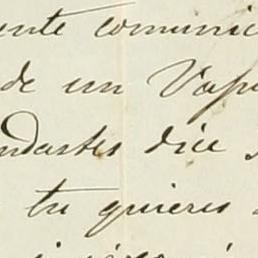 ente comunic
de un Vapo
ndastes dice
tu quieres